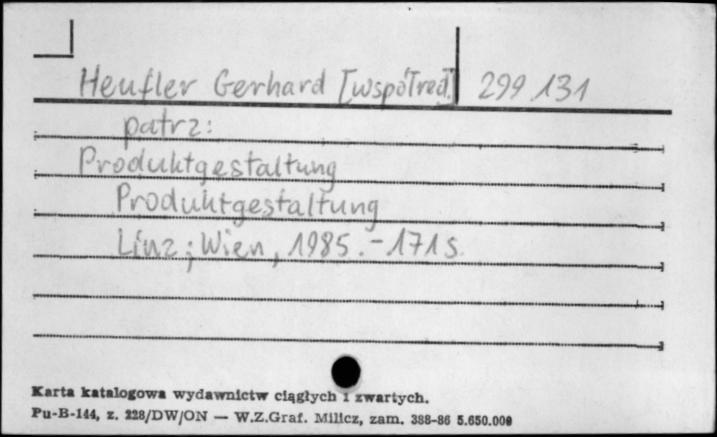 Heufler Gerhard [współred.] 299 131
patrz:
Produktgestaltung
Produktgestaltung
Linz ; Wien, 1985. - 171 s.
Karta katalogowa wydawnictw ciągłych i zwartych.
Pu-B-144, z. 228/DW/ON — W.Z.Graf. Milicz, zam. 388-86 5.650.000